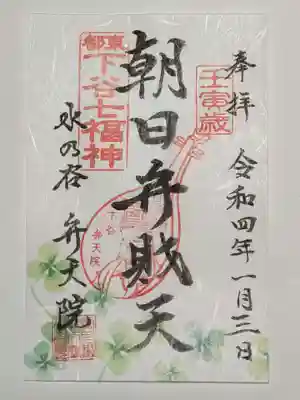 奉拝
壬寅歳
令和四年一月三日
朝日弁財天
東都
下谷七福神
下谷
弁天院
水の谷 弁天院